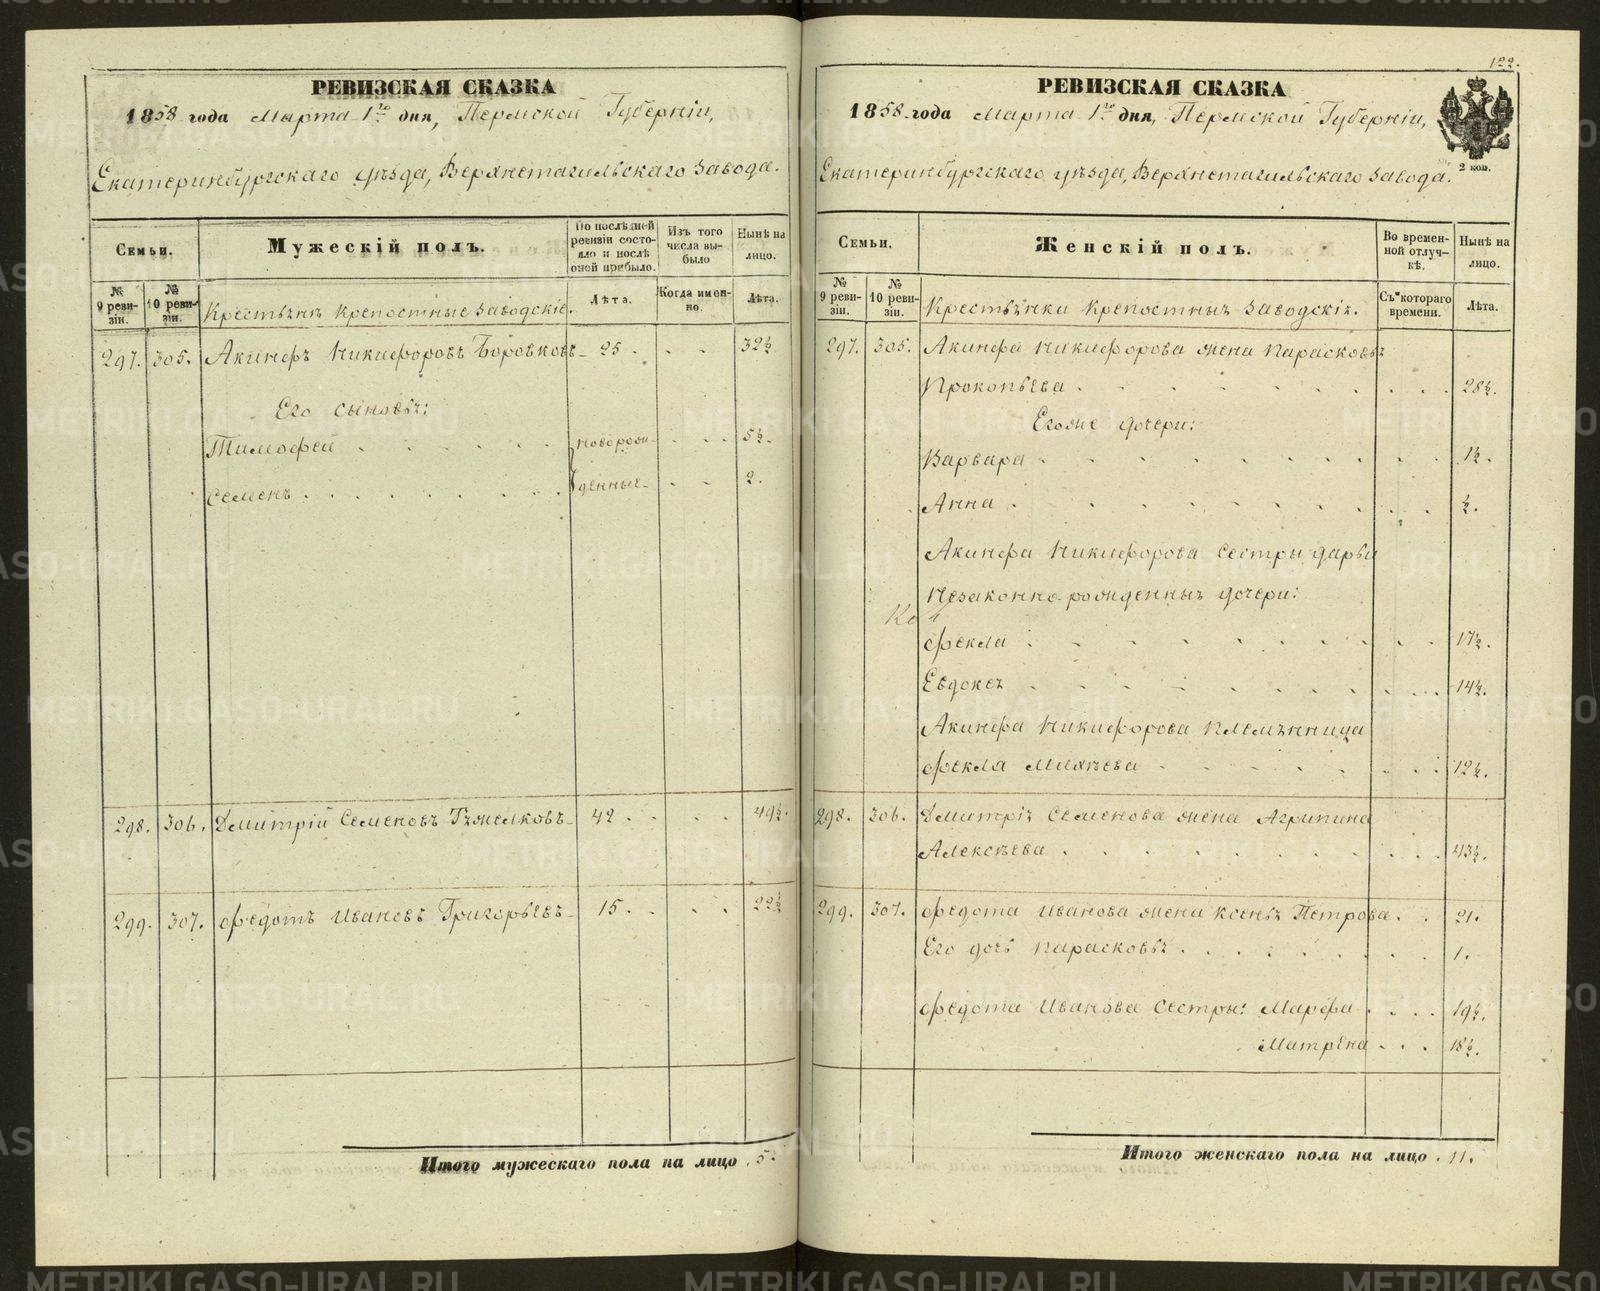 РЕВИЗСКАЯ СКАЗКА
1858 года Марта 1го дня, Пермской Губерніи,
Екатеринбургскаго уѣзда, Верхнетагильскаго завода.
Семьи.
Мужескій полъ.
По послѣдней ревизіи состояло и послѣ оной прибыло.
Изъ того числа выбыло
Нынѣ на лицо.
№ 9 ревизіи.
№ 10 ревизіи.
Крестьянѣ крепостные заводскіе.
Лѣта.
Когда именно.
Лѣта.
297. 305. Акинфъ Никифоровъ Боровковъ 25 . . . 32½
Его сыновья:
Тимофей . . . . . новорож- . . . 5½.
Семенъ . . . . . . . . денные . . 2.
298. 306. Дмитрій Семеновъ 42 . . . . 49½.
299. 307. Федотъ Ивановъ Григорьевъ 15 . . . . 22½
Итого мужескаго пола на лицо . 5.
122.
РЕВИЗСКАЯ СКАЗКА
1858 года Марта 1го дня, Пермской Губерніи,
Екатеринбургскаго уѣзда, Верхнетагильскаго завода.
2 коп.
Семьи.
Женскій полъ.
Во временной отлучкѣ.
Нынѣ на лицо.
№ 9 ревизіи.
№ 10 ревизіи.
Крестьянки крепостныя заводскія.
Съ котораго времени.
Лѣта.
297. 305. Акинфа Никифорова жена Парасковья
Прокопьева . . . . . . . . . 28½.
Егоже дочери:
Варвара . . . . . . . . . 1½.
Анна . . . . . . . . . . ½.
Акинфа Никифорова сестры Дарьи
незаконно-рожденныя дочери:
Фекла . . . . . . . . . 17½.
Евдокея . . . . . . . . . 14½.
Акинфа Никифорова племянница
Фекла Михѣева . . . . . . . 12½.
298. 306. Дмитрія Семенова жена Агрипина
Алексѣева . . . . . . . . . 43½.
299. 307. Федота Иванова жена Ксенья Петрова . . 21.
Его дочь Парасковья . . . . . . . 1.
Федота Иванова сестры: Марфа . . . . 19½.
Матрена . . . 18½.
Итого женскаго пола на лицо . 11.
METRIKI.GASO-URAL.RU